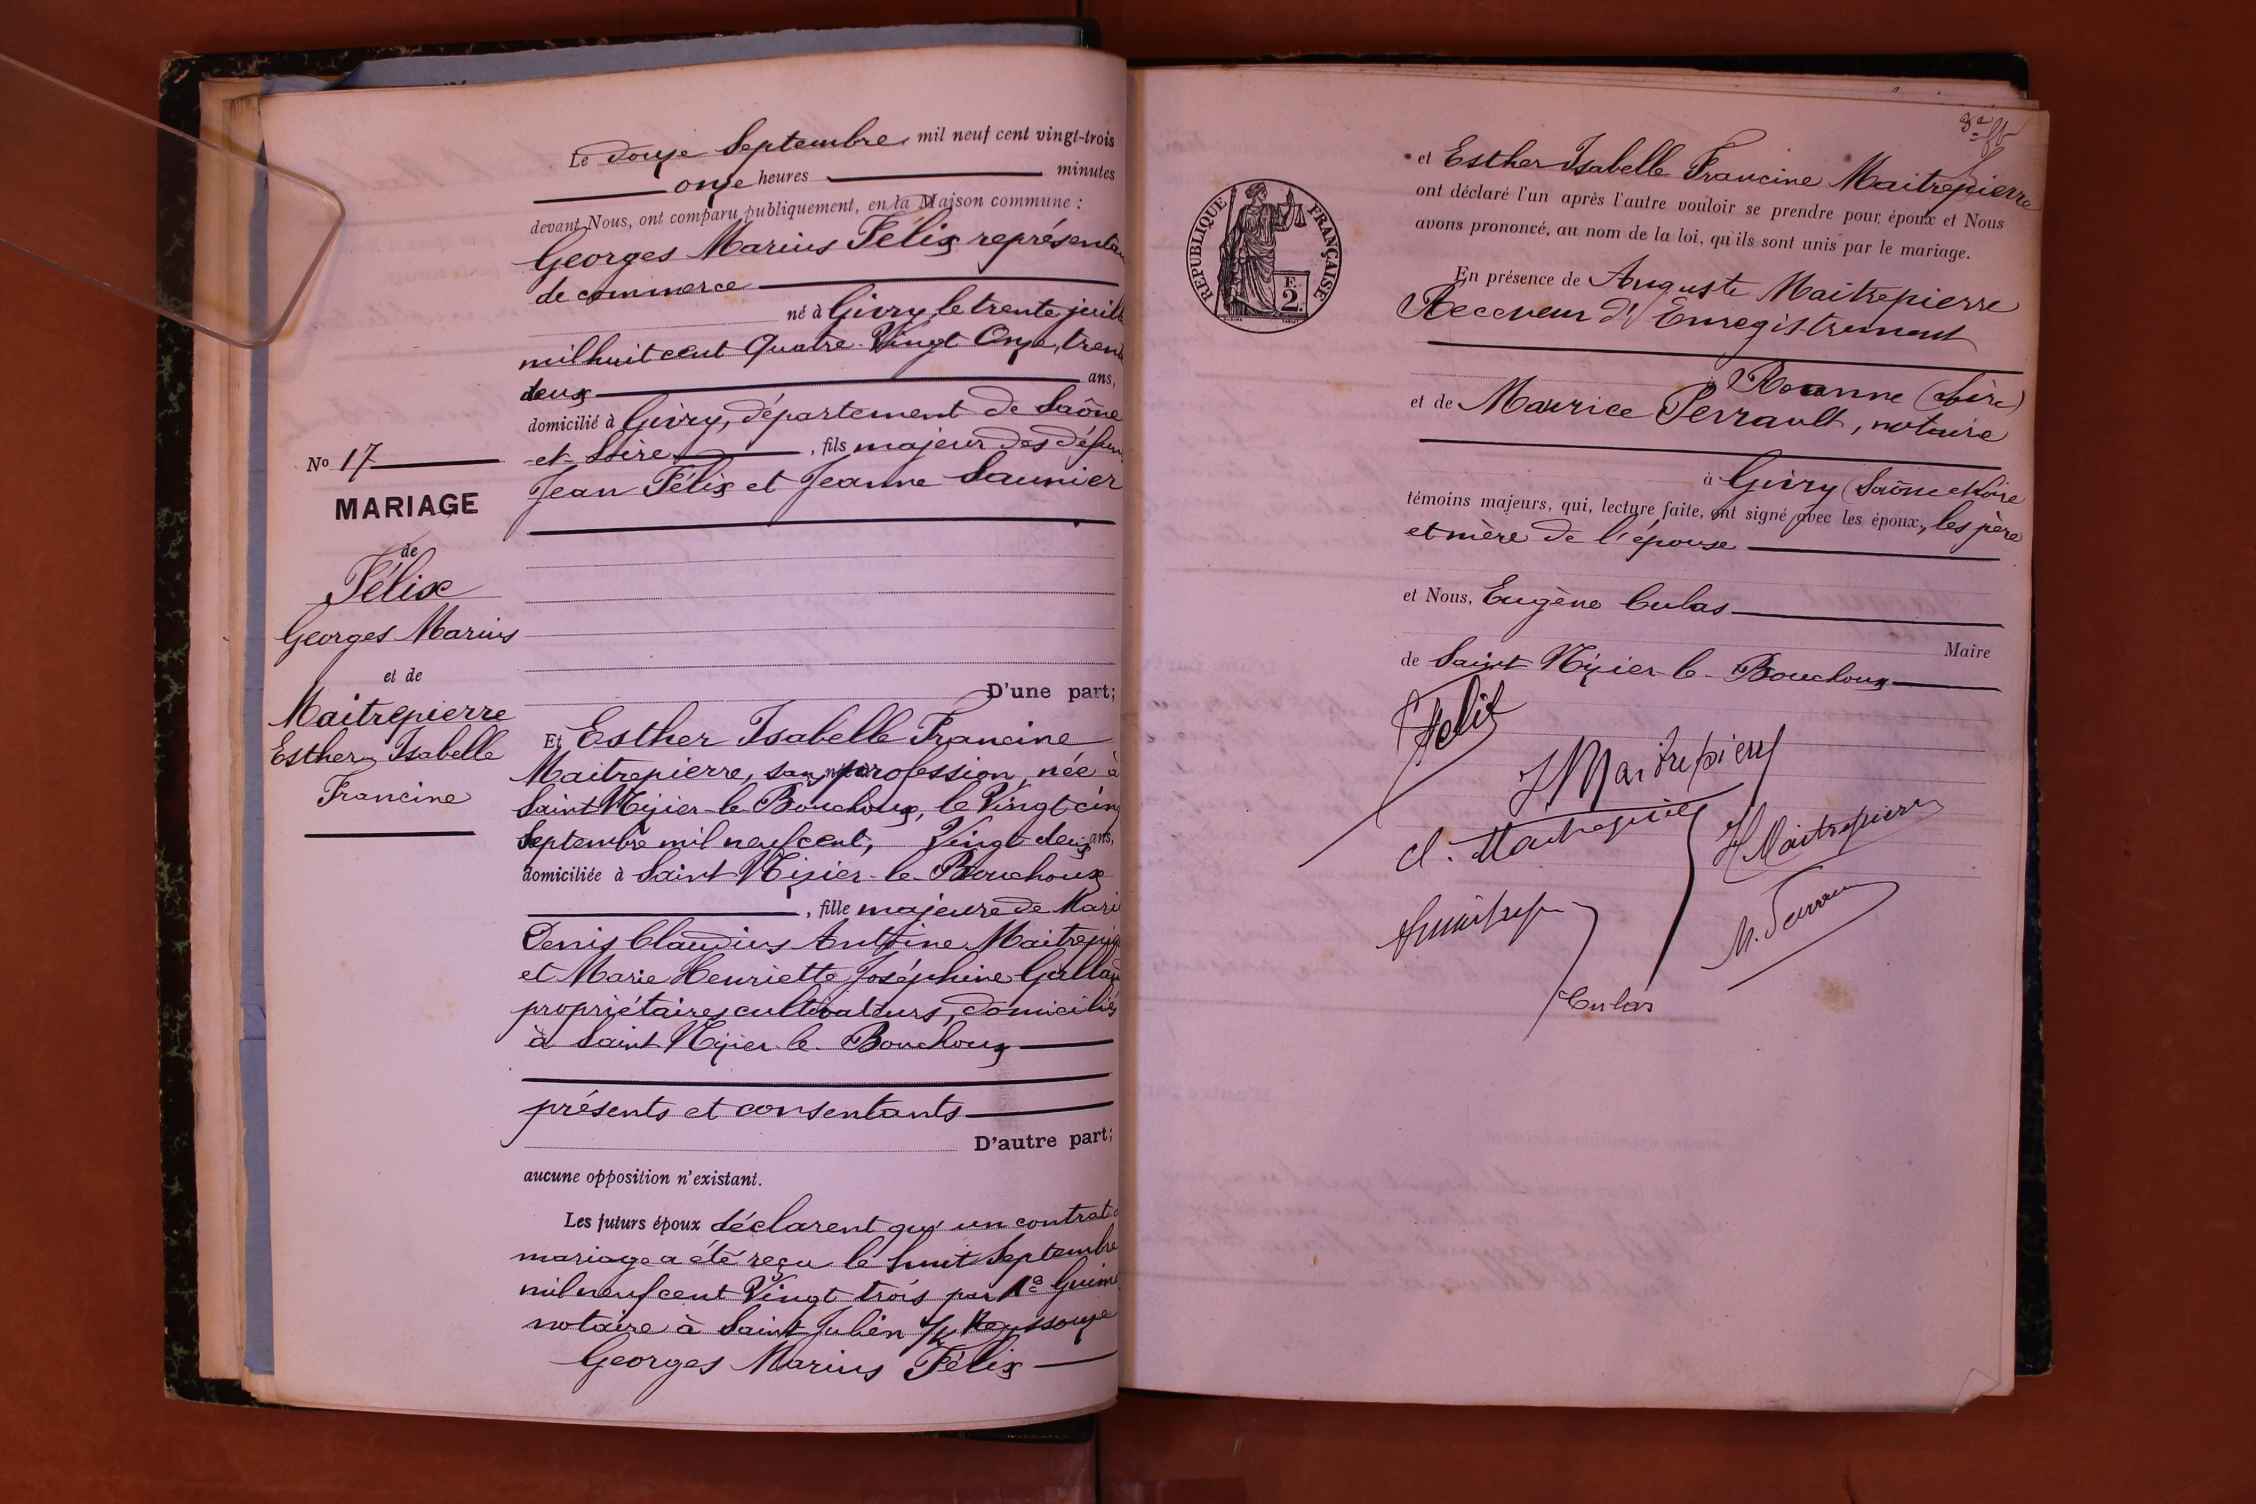 Le douze Septembre mil neuf cent vingt-trois
onze heures minutes
devant Nous, ont comparu publiquement, en la Maison commune :
Georges Marius Félix représentan
de commerce
né à Givry, le trente juill
mil huit cent Quatre-Vingt Onze, trent
deux ans,
domicilié à Givry, département de Saône
et Loire, fils majeur des défun
Jean Félix et Jeanne Saunier
No 17
MARIAGE
de
Félix
Georges Marius
et de
Maitrepierre
Esther Isabelle
Francine
D'une part;
Et Esther Isabelle Francine
Maitrepierre, sans profession, née à
Saint Nizier-le-Bouchoux, le Vingt cinq
Septembre mil neuf cent, Vingt deux ans,
domiciliée à Saint Nizier-le-Bouchoux
, fille majeure de Mari
Denis Claudius Antoine Maitrepie
et Marie Henriette Joséphine Galland
propriétaires cultivateurs, domiciliés
à Saint Nizier-le-Bouchoux
présents et consentants
D'autre part;
aucune opposition n'existant.
Les futurs époux déclarent qu'un contrat d
mariage a été reçu le huit Septembre
mil neuf cent Vingt trois par Me
notaire à Saint Julien s/ Reyssouze
Georges Marius Félix
et Esther Isabelle Francine Maitrepierre
ont déclaré l'un après l'autre vouloir se prendre pour époux et Nous
avons prononcé, au nom de la loi, qu'ils sont unis par le mariage.
RÉPUBLIQUE FRANÇAISE
F.
2.
En présence de Auguste Maitrepierre
Receveur d'Enregistrement
à Roanne (Loire)
et de Maurice Perrault, notaire
à Givry (Saône et Loire
témoins majeurs, qui, lecture faite, ont signé avec les époux, les père
et mère de l'épouse
et Nous, Eugène Culas
Maire
de Saint Nizier-le-Bouchoux
Felix
Maitrepierre
Cl. Maitrepierre
H Maitrepierre
M. Perrau
Culas